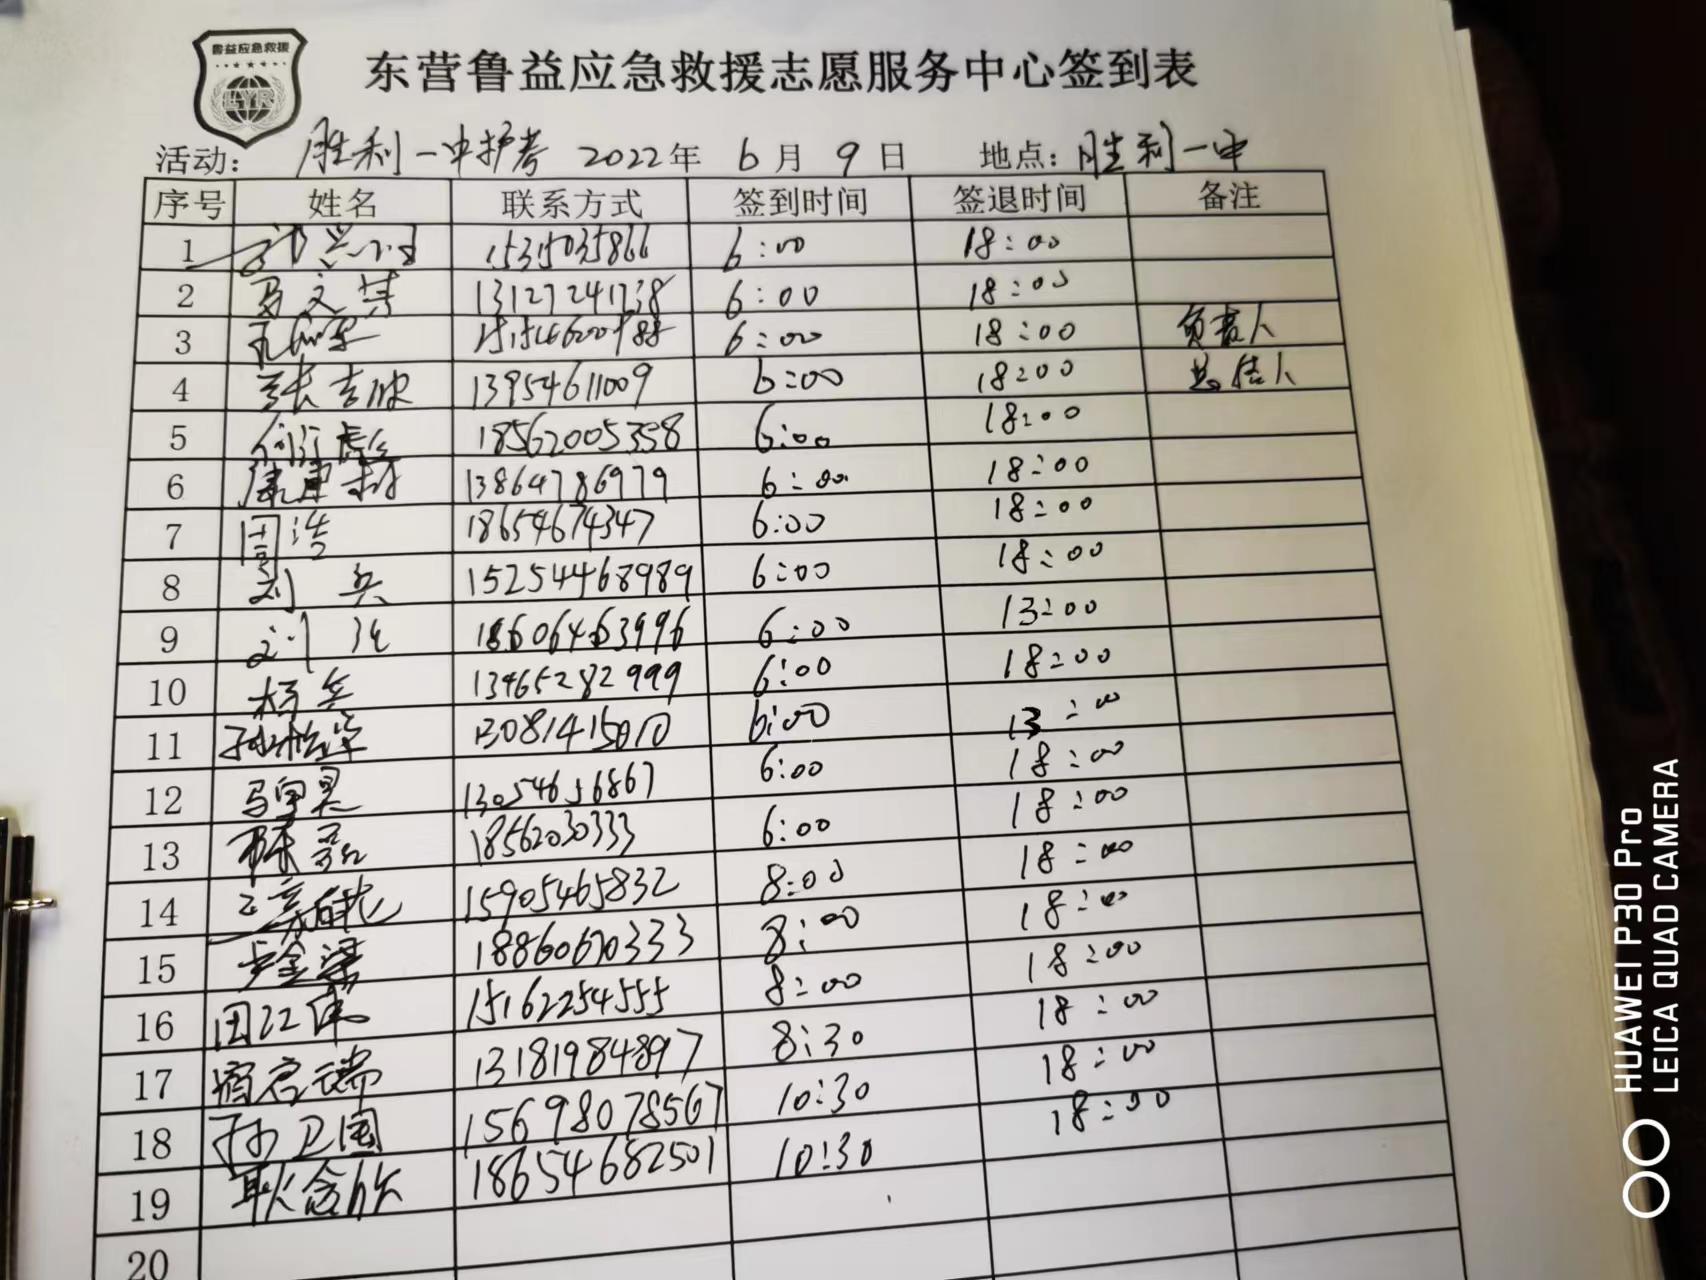 鲁益应急救援
LYR
东营鲁益应急救援志愿服务中心签到表
活动: 胜利一中护考 2022年 6月 9日 地点: 胜利一中
序号 姓名 联系方式 签到时间 签退时间 备注
1 15315035866 6:00 18:00
2 马文慧 13127241738 6:00 18:00
3 15154620988 6:00 18:00 负责人
4 张吉波 13954611009 6:00 18:00 总结人
5 18562005358 6:00 18:00
6 13864786979 6:00 18:00
7 周浩 18654674347 6:00 18:00
8 刘兵 15254468989 6:00 18:00
9 18606463996 6:00 13:00
10 杨兵 13465282999 6:00 18:00
11 6:00 13:00
12 13054656867 6:00 18:00
13 18562030333 6:00 18:00
14 15905465832 8:00 18:00
15 18860670333 8:00 18:00
16 田江伟 15162254555 8:00 18:00
17 宿君瑞 13181984897 8:30 18:00
18 孙卫国 15698078567 10:30 18:00
19 耿念欣 18654682501 10:30 18:00
20
HUAWEI P30 Pro
LEICA QUAD CAMERA